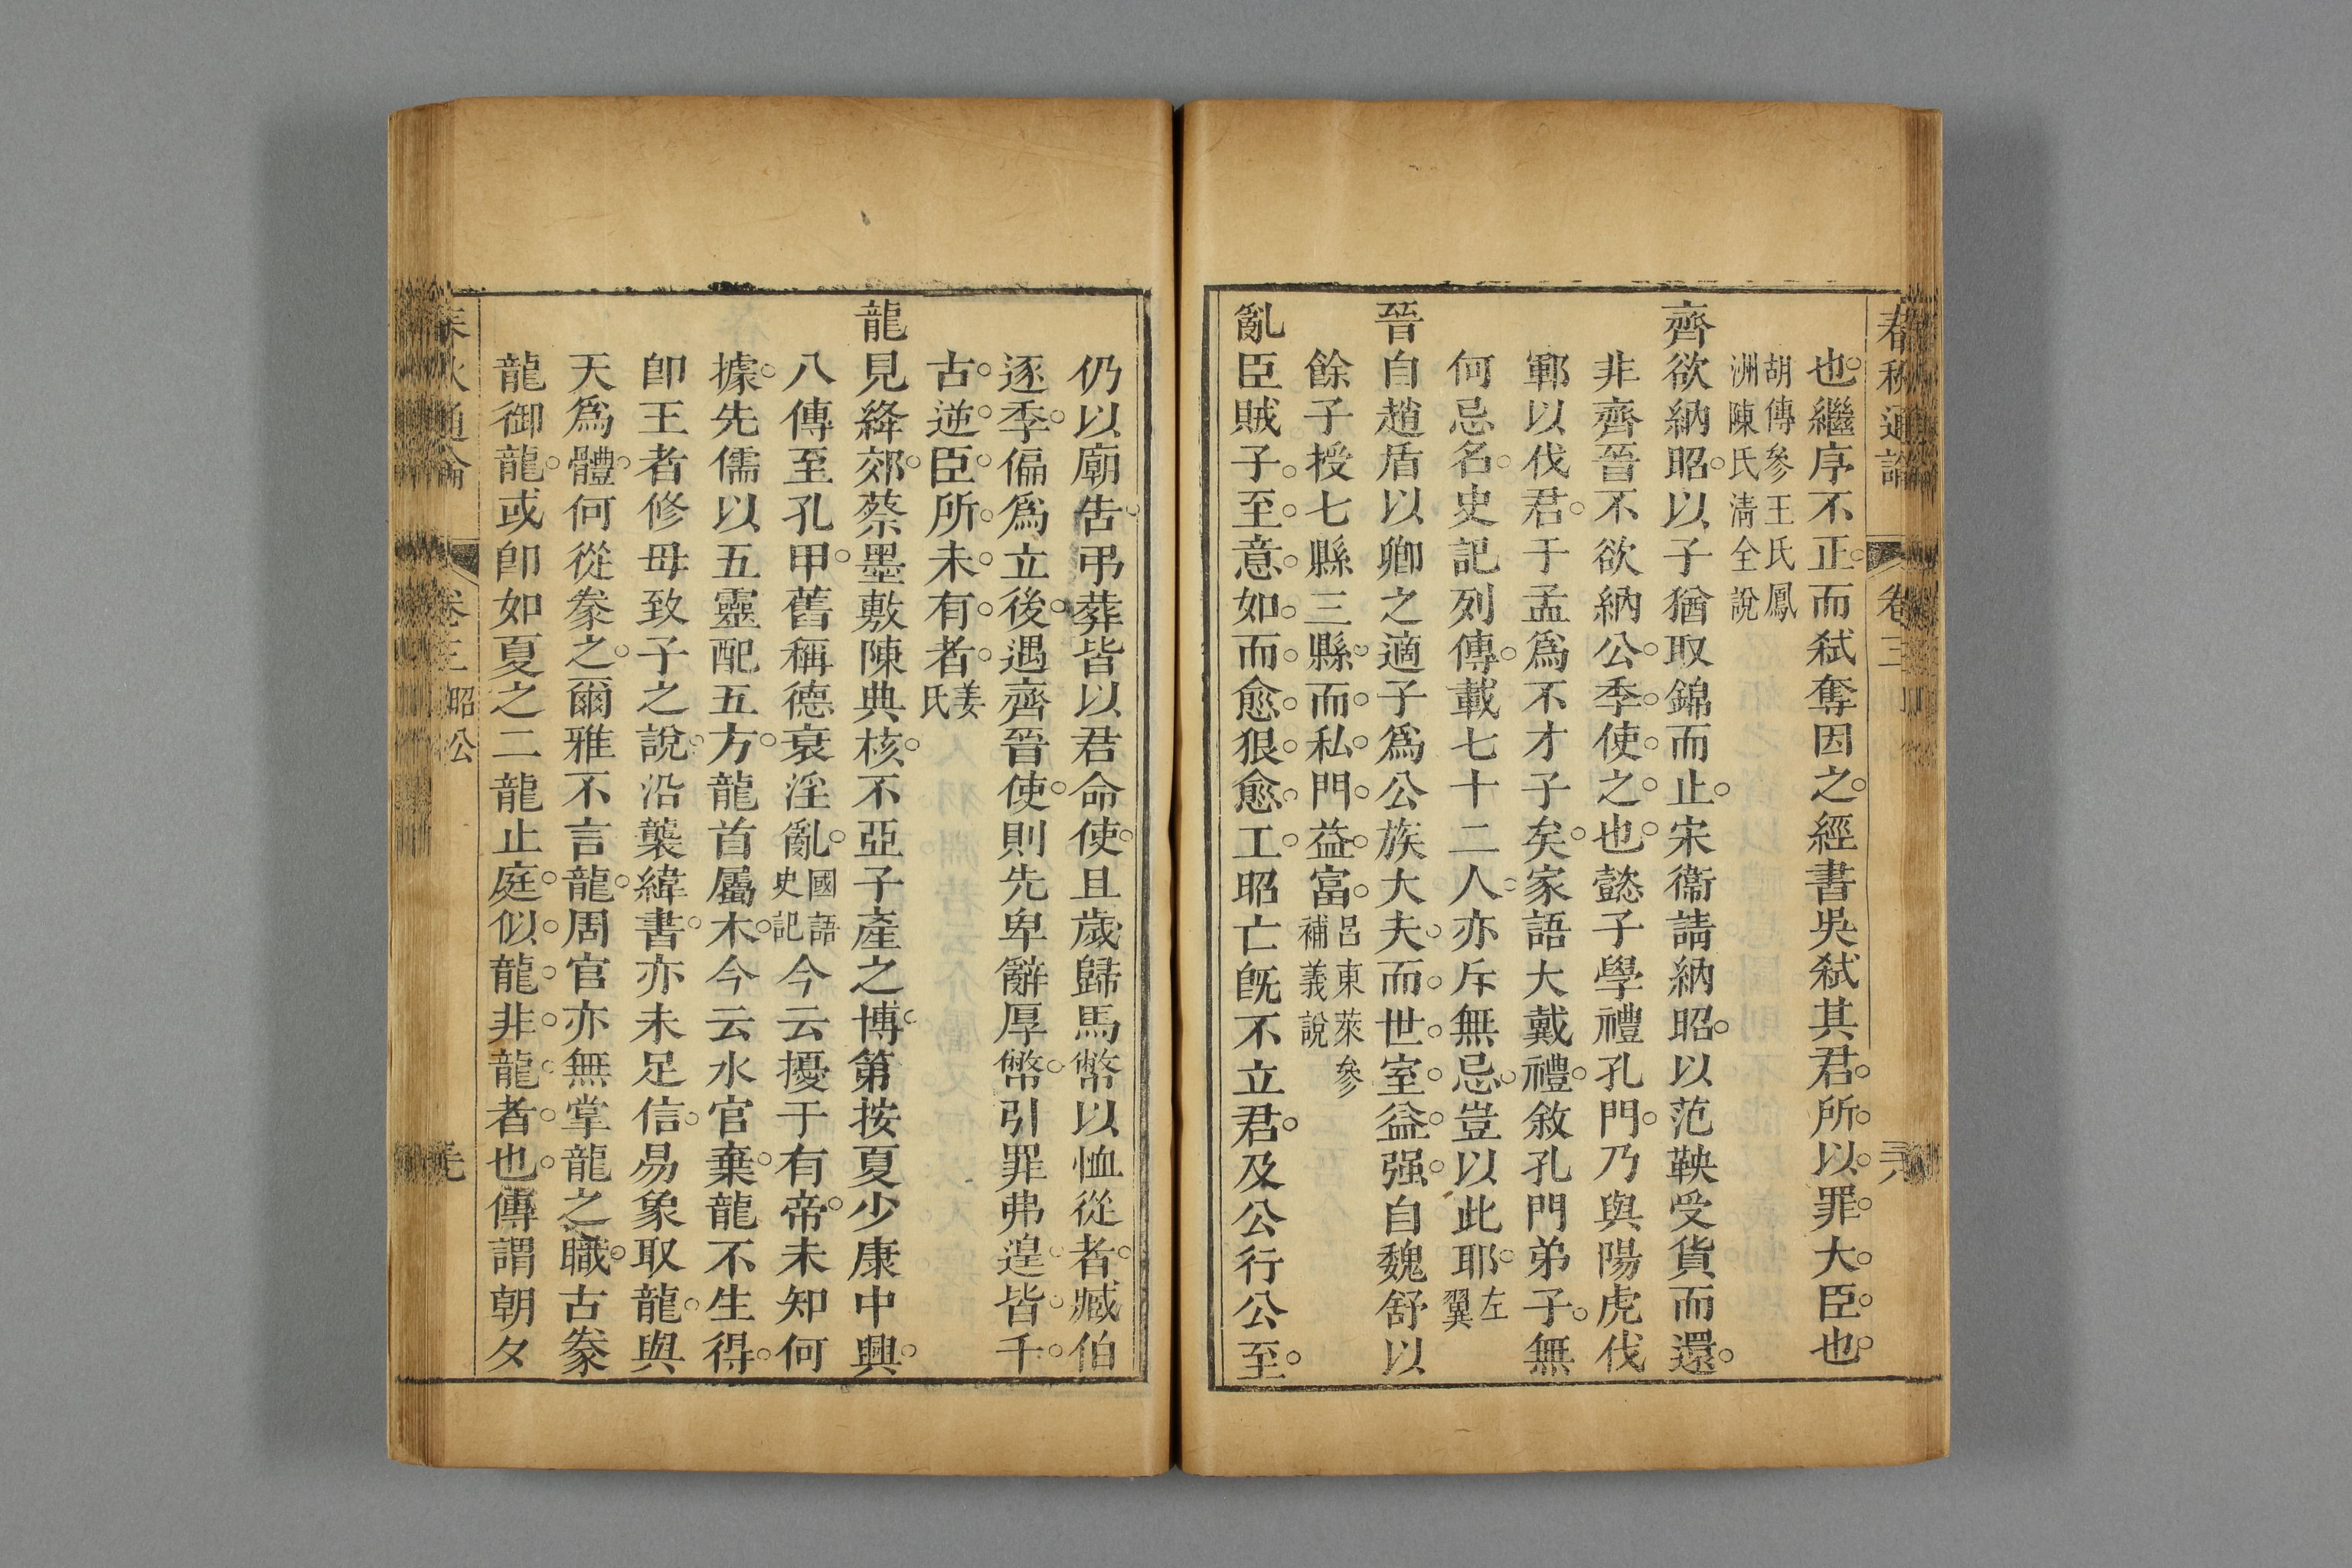 春秋通論 卷三 三八
也繼序不正而弑奪因之經書吳弑其君所以罪大臣也
胡傳參王氏鳳
洲陳氏淸全說
齊欲納昭以子猶取錦而止宋衞請納昭以范鞅受貨而還
非齊晉不欲納公季使之也懿子學禮孔門乃與陽虎伐
鄆以伐君于孟爲不才子矣家語大戴禮敘孔門弟子無
何忌名史記列傳載七十二人亦斥無忌豈以此耶左翼
晉自趙盾以卿之適子爲公族大夫而世室益强自魏舒以
餘子授七縣三縣而私門益富呂東萊參補義說
亂臣賊子至意如而愈狠愈工昭亡旣不立君及公行公至
仍以廟告弔葬皆以君命使且歲歸馬幣以恤從者臧伯
逐季偏爲立後遇齊晉使則先卑辭厚幣引罪弗遑皆千
古逆臣所未有者姜氏
龍見絳郊蔡墨敷陳典核不亞子產之博第按夏少康中興
八傳至孔甲舊稱德衰淫亂國語史記今云擾于有帝未知何
據先儒以五靈配五方龍首屬木今云水官棄龍不生得
卽王者修母致子之說沿襲緯書亦未足信易象取龍與
天爲體何從豢之爾雅不言龍周官亦無掌龍之職古豢
龍御龍或卽如夏之二龍止庭似龍非龍者也傳謂朝夕
春秋通論 卷三 昭公